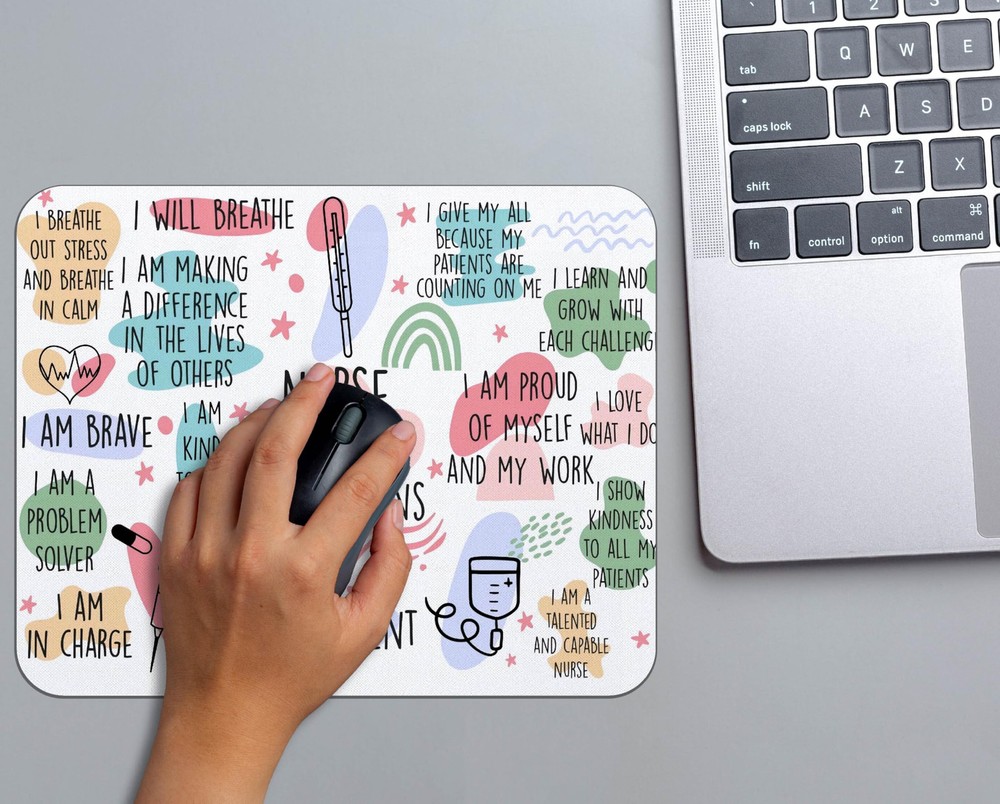 I BREATHE
OUT STRESS
AND BREATHE
IN CALM
I WILL BREATHE
I AM MAKING
A DIFFERENCE
IN THE LIVES
OF OTHERS
I GIVE MY ALL
BECAUSE MY
PATIENTS ARE
COUNTING ON ME
I LEARN AND
GROW WITH
EACH CHALLENG
I AM BRAVE
I AM
KIND
I AM PROUD
OF MYSELF
AND MY WORK
I LOVE
WHAT I DO
I AM A
PROBLEM
SOLVER
I SHOW
KINDNESS
TO ALL MY
PATIENTS
I AM
IN CHARGE
I AM A
TALENTED
AND CAPABLE
NURSE
` 1 2 3
tab Q W E
caps lock A S D
shift Z X
fn control alt option ⌘ command